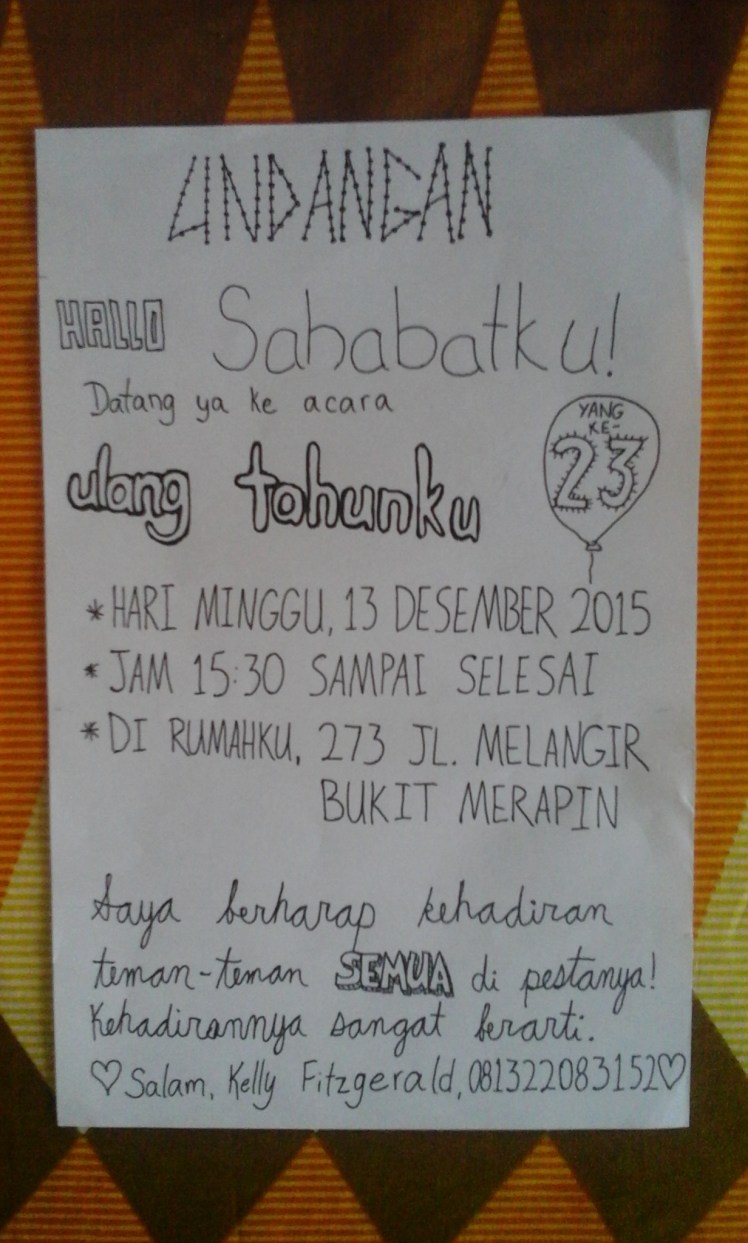 UNDANGAN
HALLO Sahabatku!
Datang ya ke acara
ulang tahunku
YANG
KE-
23
*HARI MINGGU, 13 DESEMBER 2015
*JAM 15:30 SAMPAI SELESAI
*DI RUMAHKU, 273 JL. MELANGIR
BUKIT MERAPIN
Saya berharap kehadiran
teman-teman SEMUA di pestanya!
Kehadirannya sangat berarti.
♡Salam, Kelly Fitzgerald, 081322083152♡